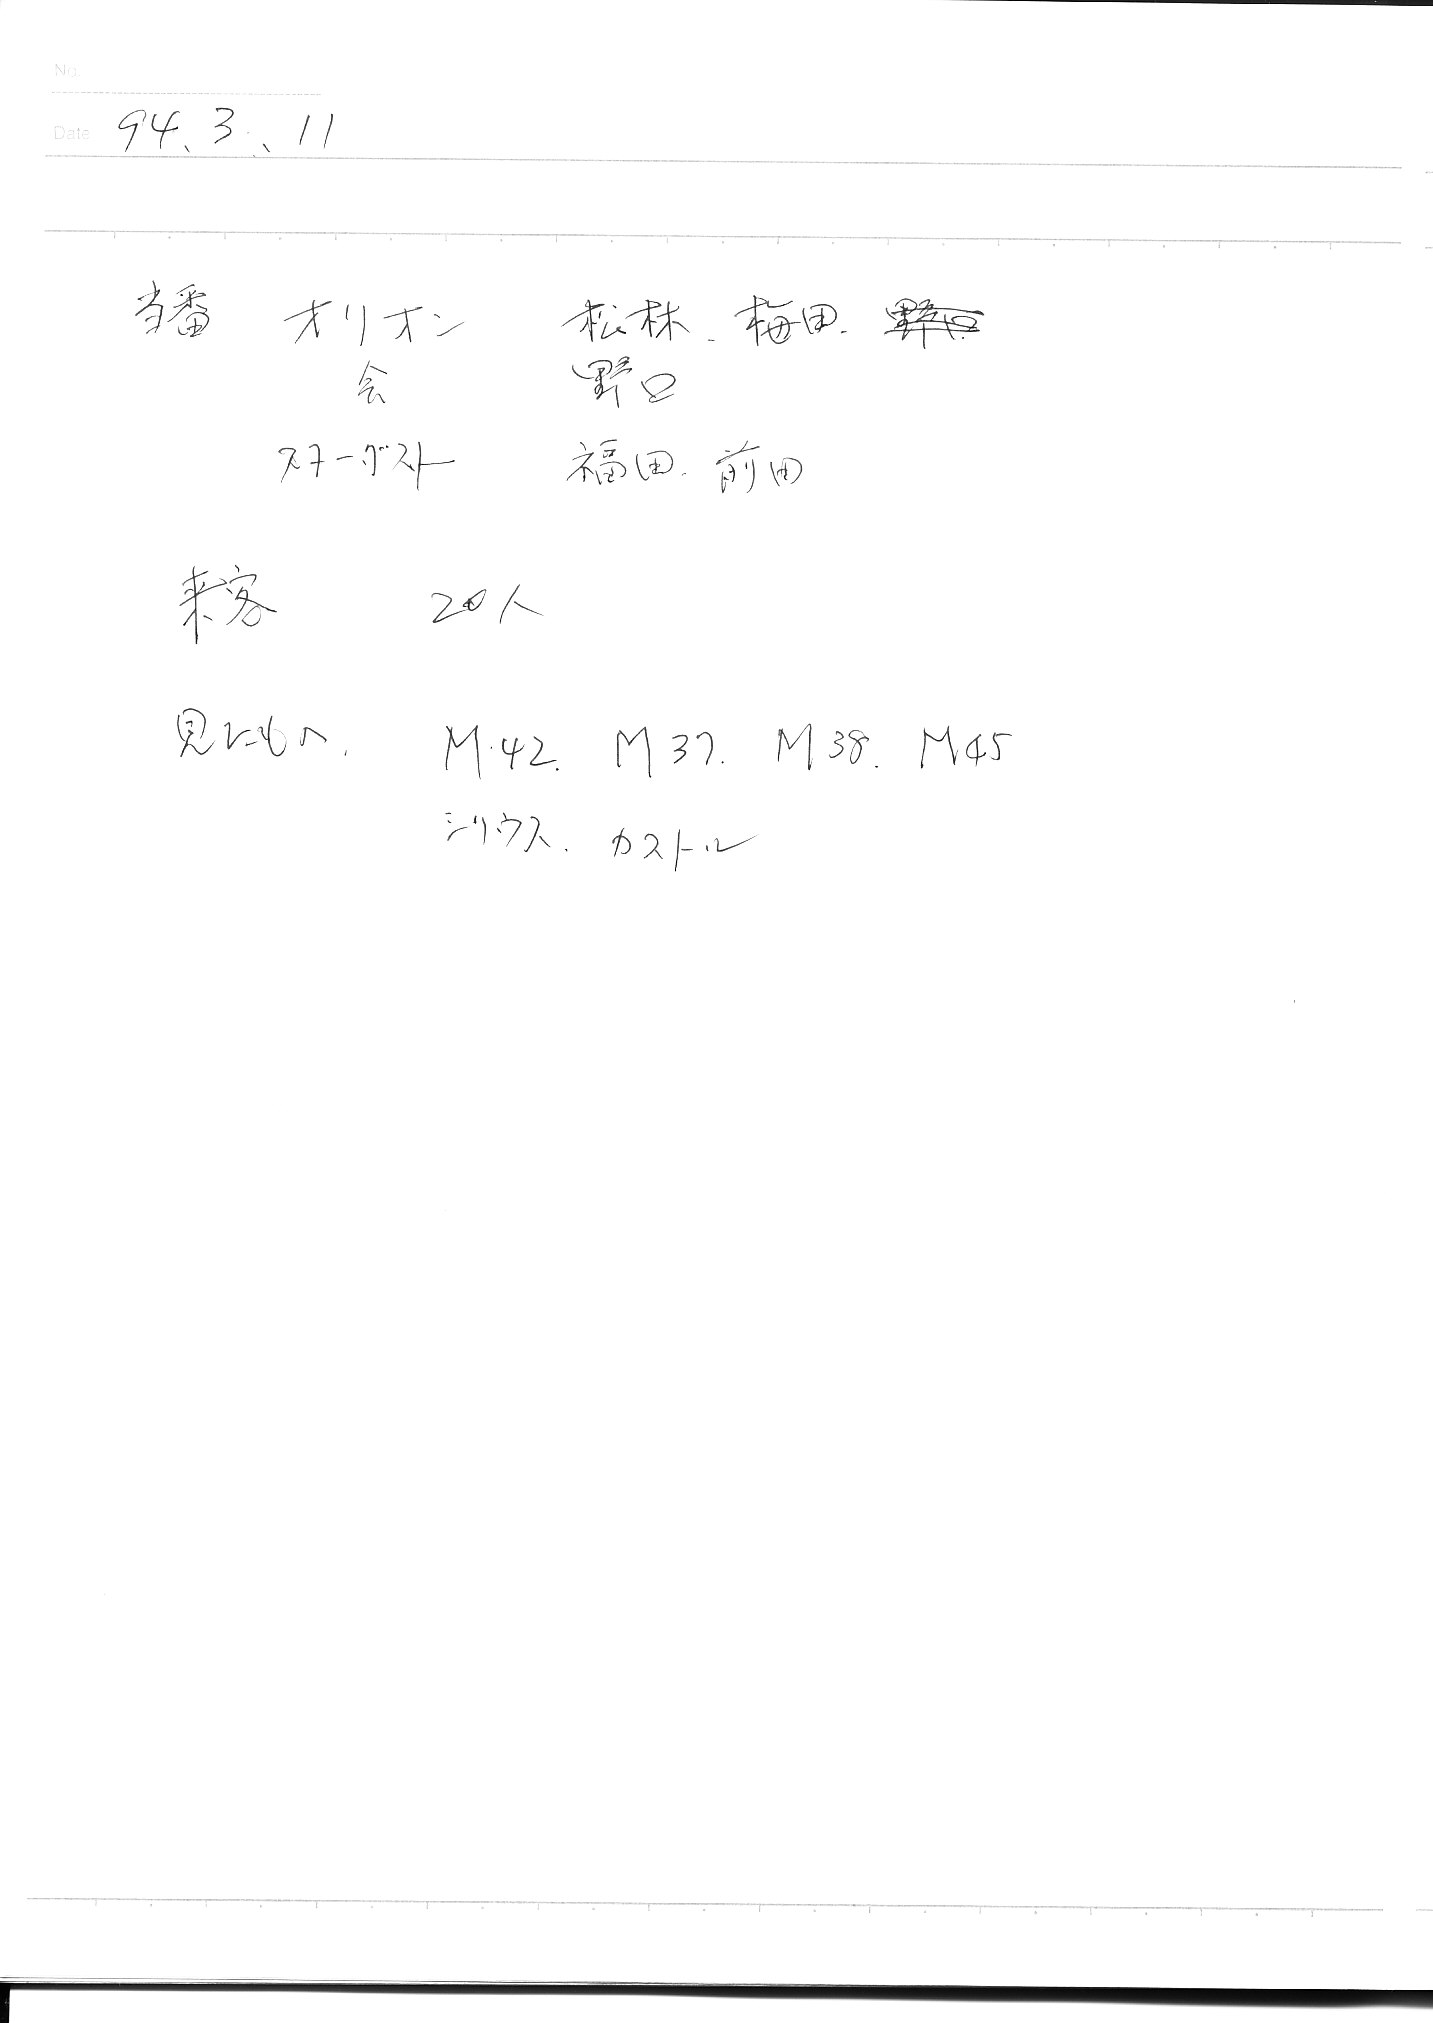 No.
Date 94、3、11
当番 オリオン 松林. 梅田. 野口
会 野口
スターダスト 福田. 前田
来客 20人
見たもの. M.42. M37. M38. M45
シリウス. カストル